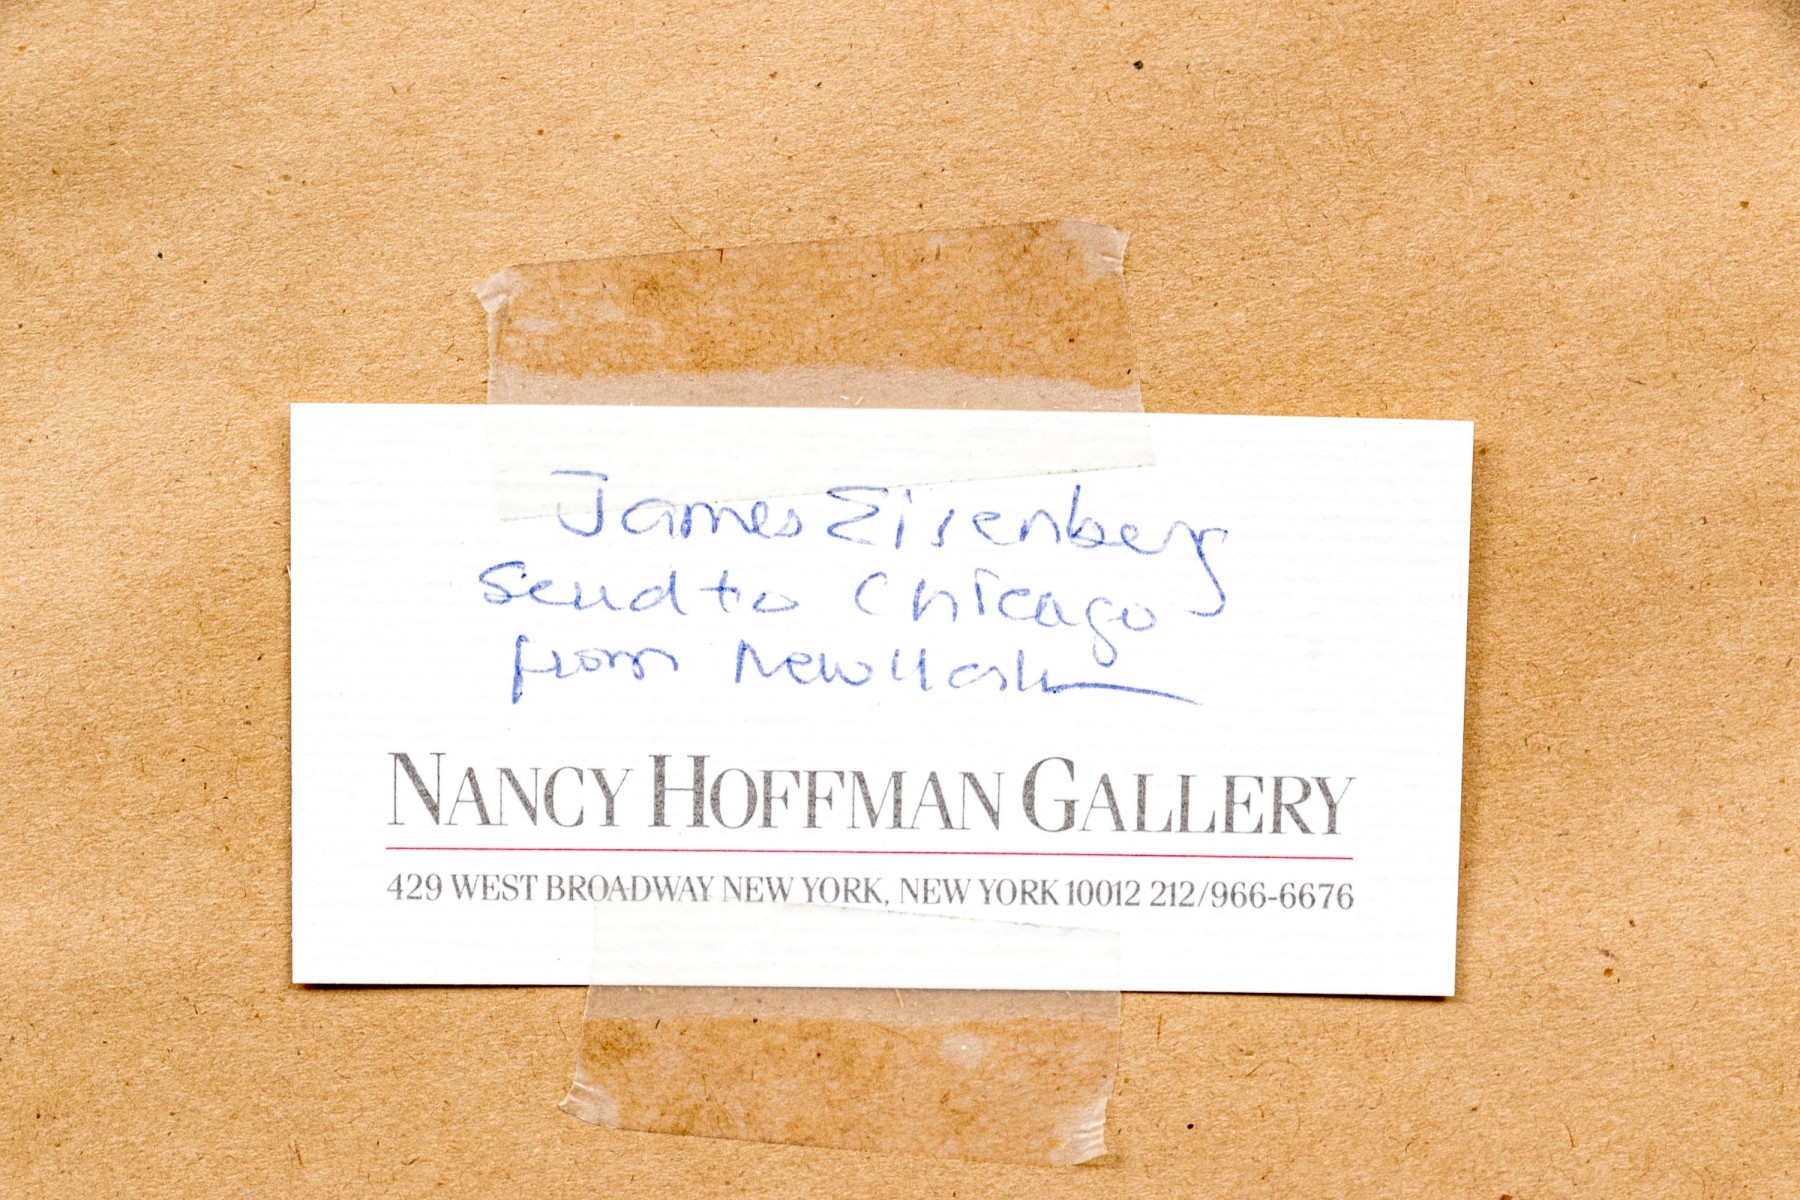 James Eisenberg
Send to Chicago
from New York
NANCY HOFFMAN GALLERY
429 WEST BROADWAY NEW YORK, NEW YORK 10012 212/966-6676